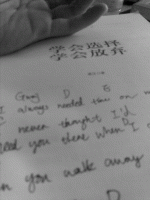 学会选择
学会放弃
G D E
I always needed this on
I never thought I'd
need you there when I
n you walk away
D